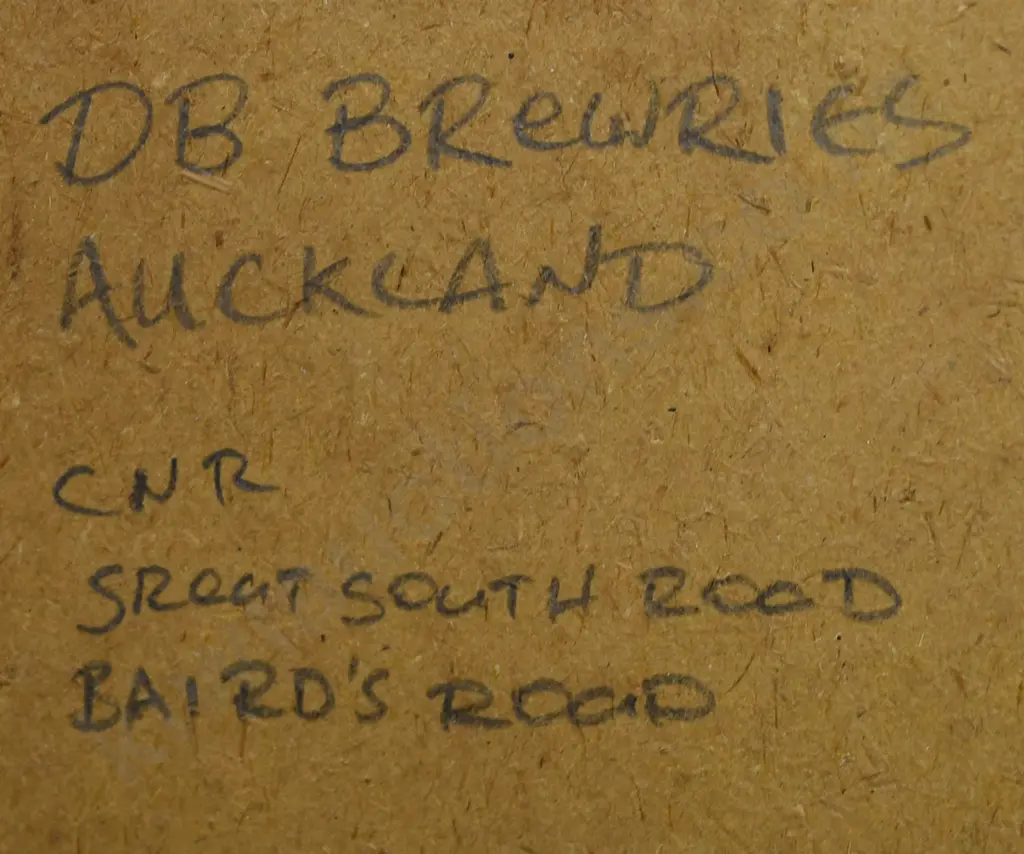 DB BREWRIES
AUCKLAND
CNR
GREAT SOUTH ROAD
BAIRD'S ROAD